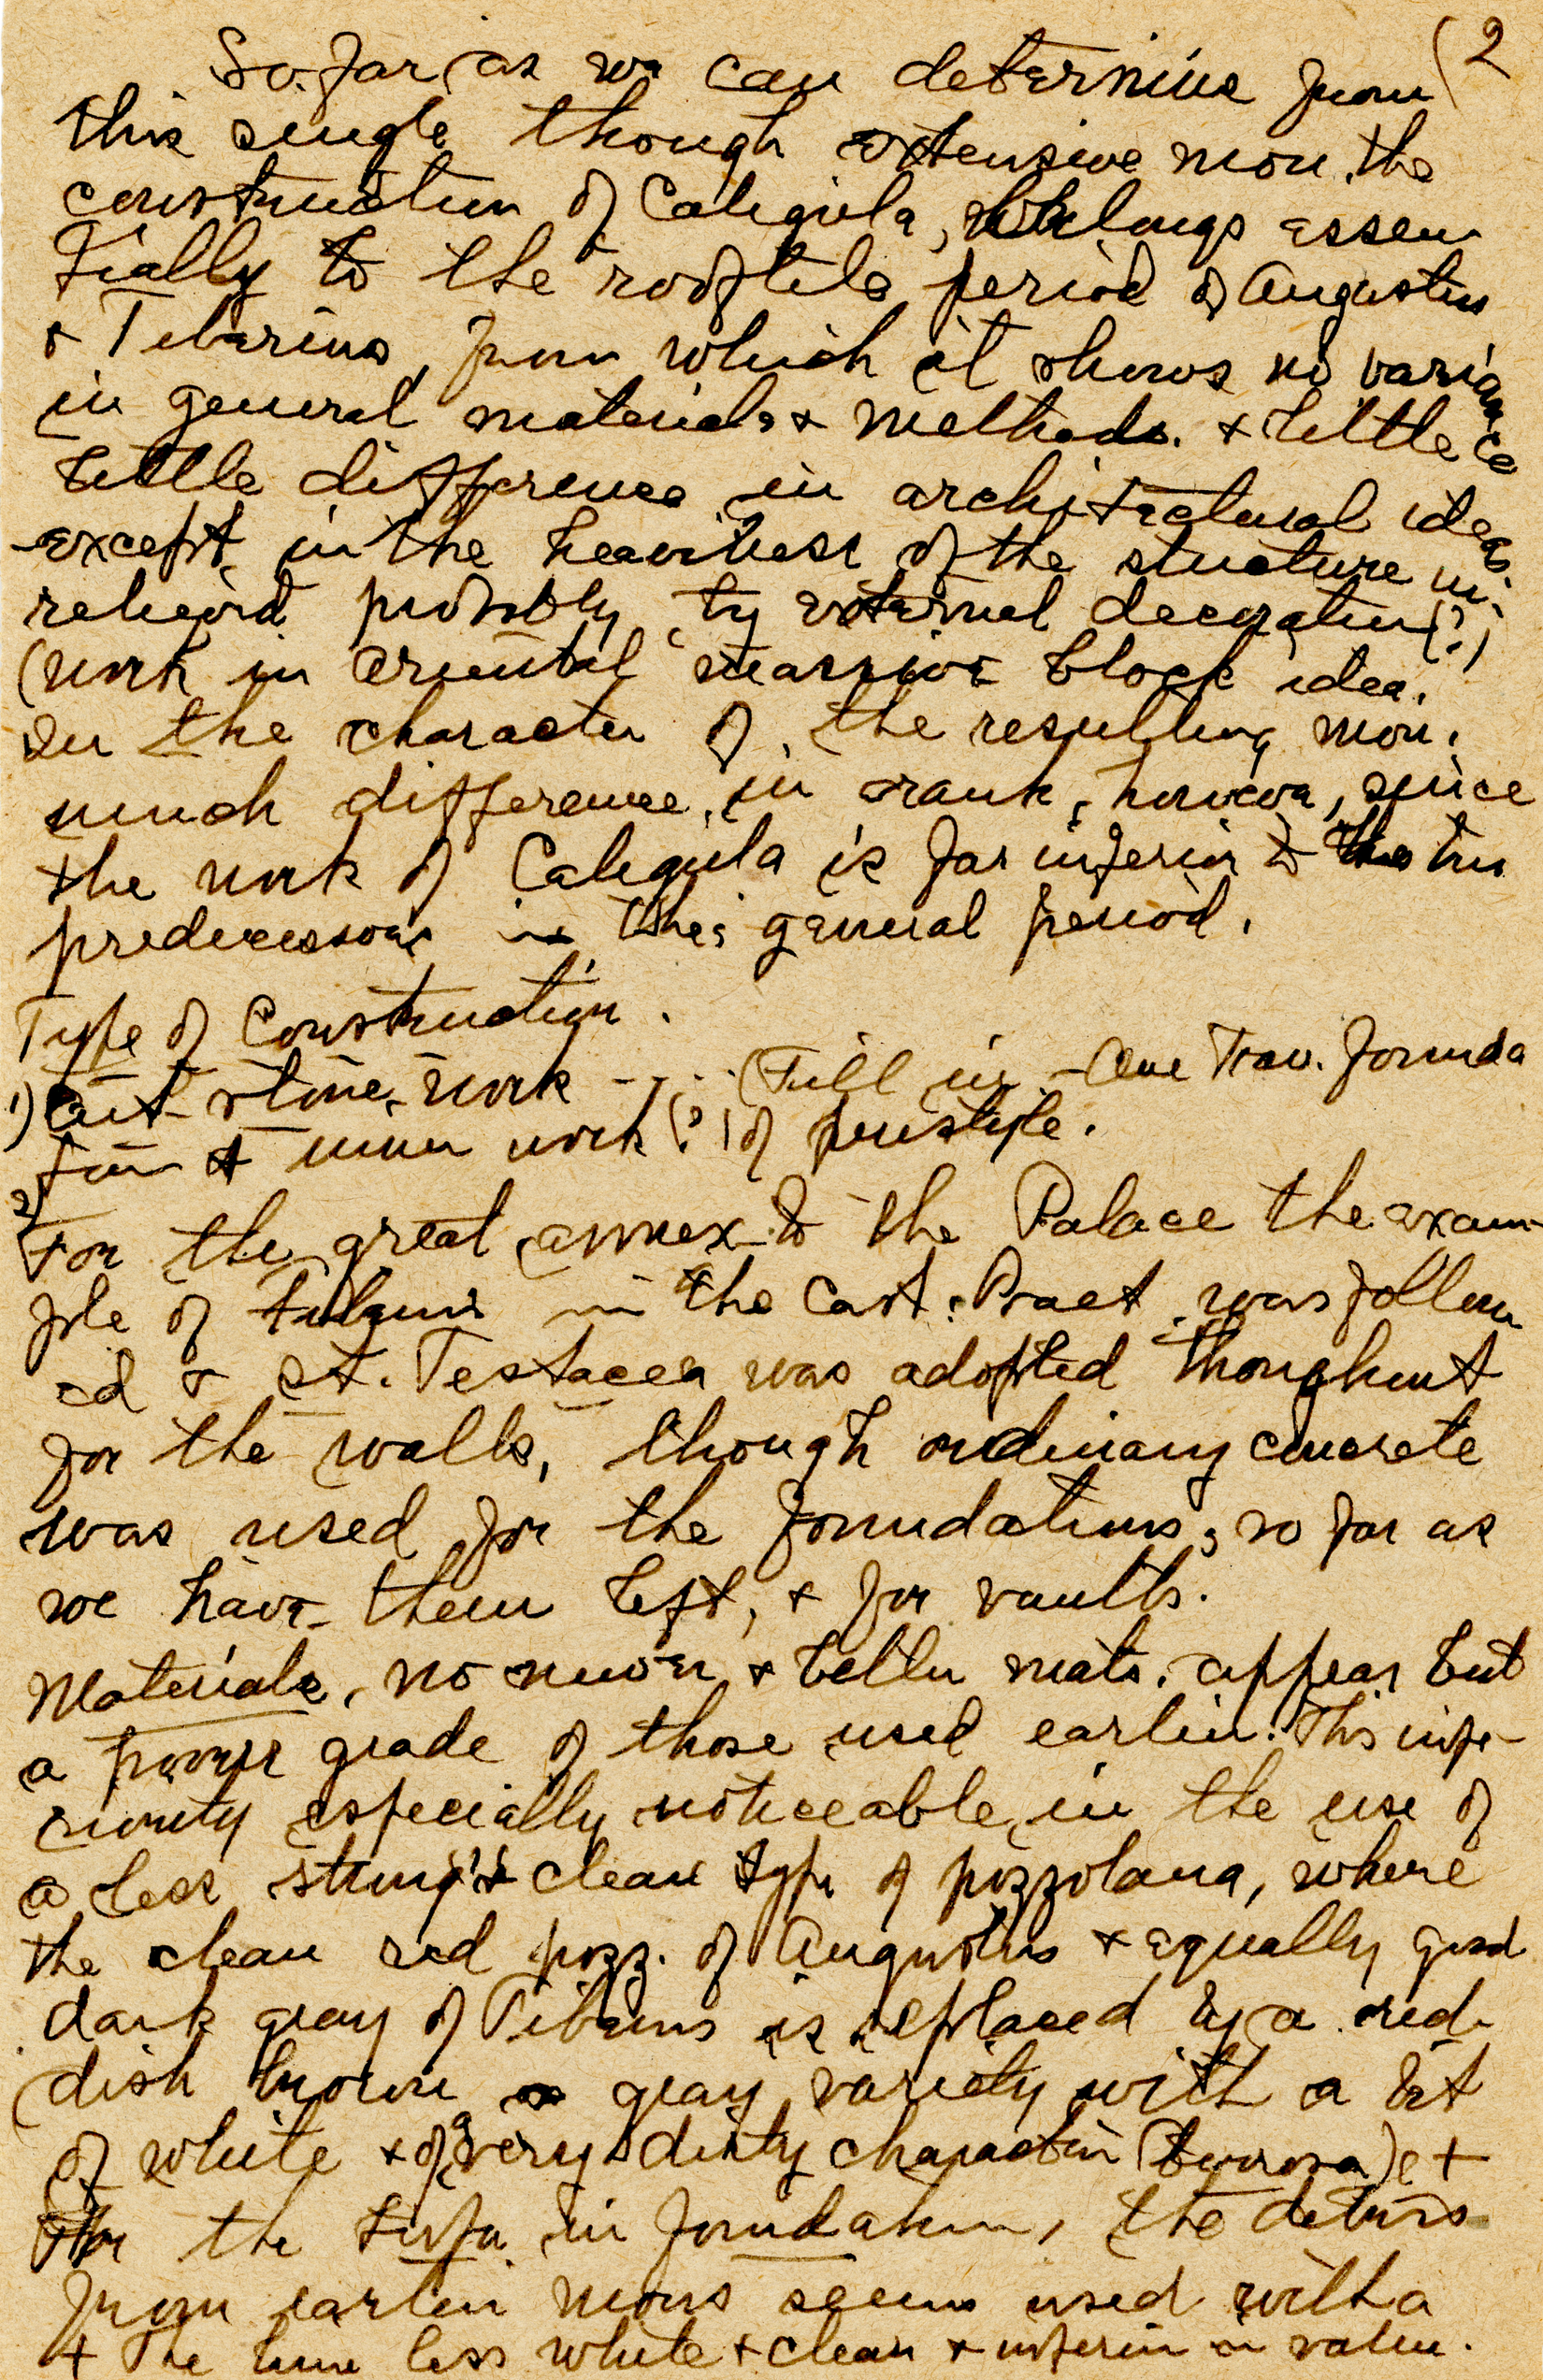 (2
So far as we can determine from
this single though extensive mon. the
construction of Caligula, belongs essen
tially to the rooftile period of Augustus
+ Tiberius, from which it shows no variance
in general materials + methods. + little
little difference in architectural ideas.
except in the heaviness of the structure un-
relieved probably by external decoration(?)
(work in oriental massive block idea.
In the character of the resulting mon.
much difference, in rank, however, since
the work of Caligula is far inferior to the two
predecessors in this general period.
Type of Construction.
1) Cut stone work - - - (Fill in - One Trav. founda
tion + inner work (?) of peristyle.
2) For the great annex to the Palace the exam-
ple of Tiberius in the Cast. Praet. was follow
ed + St. Testacea was adopted throughout
for the walls, though ordinary concrete
was used for the foundations, so far as
we have them left, + for vaults.
Materials, no newer + better mats. appear but
a poorer grade of those used earlier. This infe-
riority especially noticeable in the use of
a less strong + clean type of pozzolana, where
the clean red pozz. of Augustus + equally good
dark gray of Tiberius is replaced by a red-
dish brown or gray variety with a bit
of white + of a very dirty character (terrosa) +
For the tufa in foundation, the debris
from earlier mons seems used with a
+ The lime less white + clean + inferior in value.